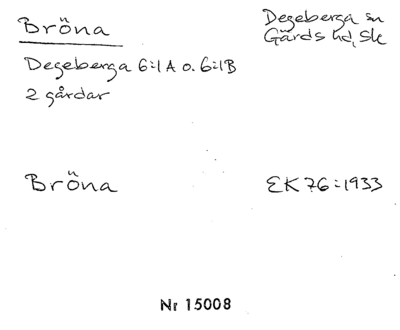 Bröna
Degeberga sn
Gärds hd, Sk
Degeberga 6:1 A o. 6:1B
2 gårdar
Bröna
EK 76:1933
Nr 15008